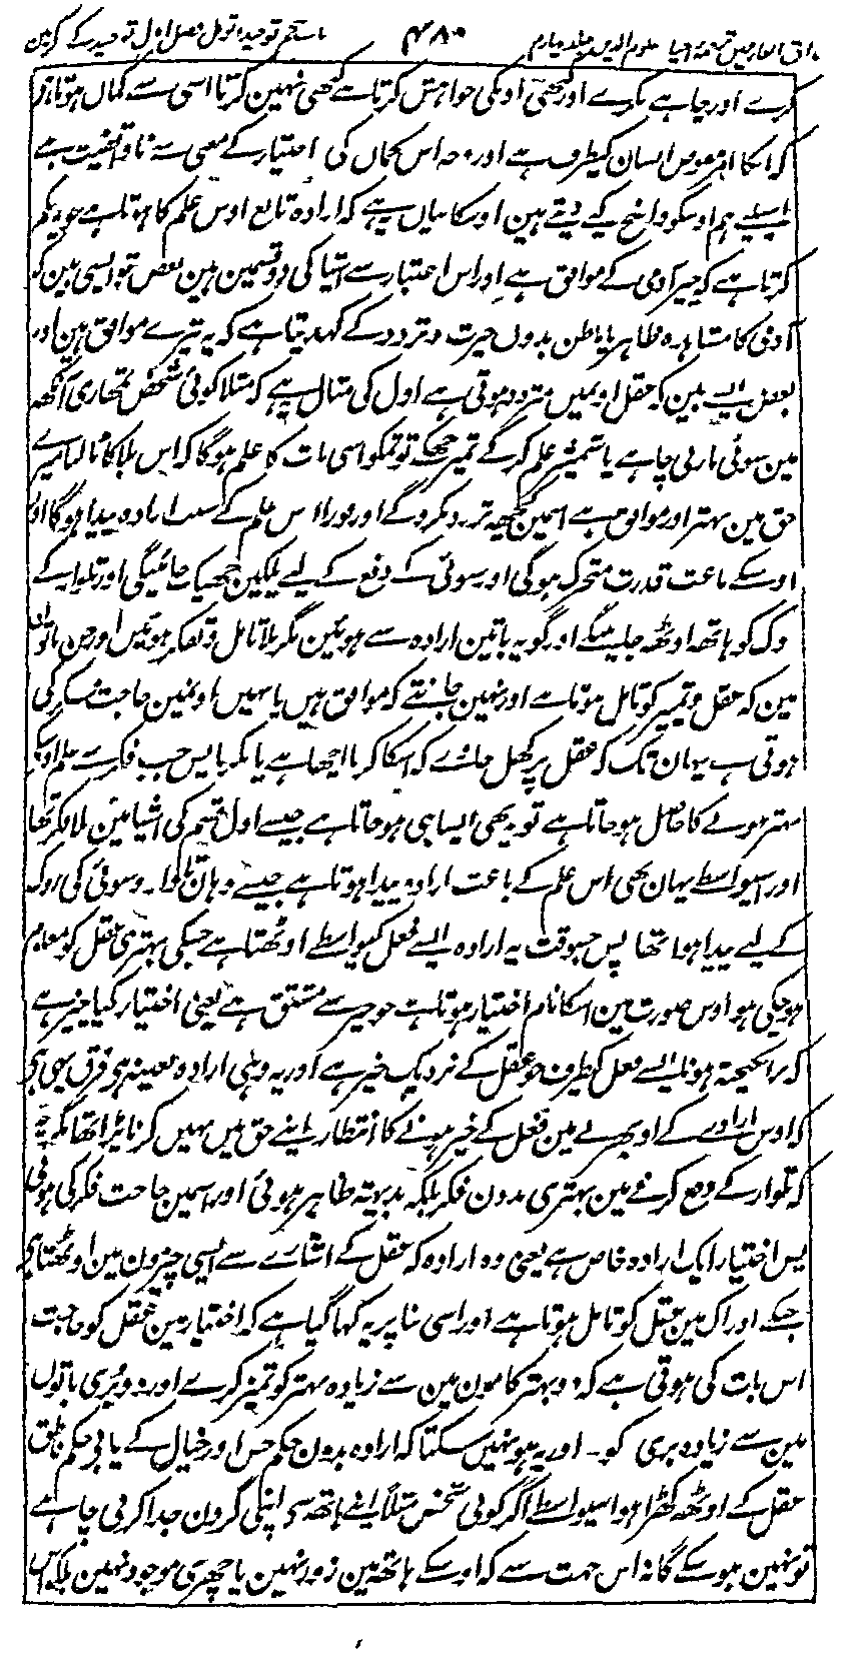 مذاق العارفین ترجمہ احیاء علوم الدین جلد چہارم ۴۸۰ باب پنجم توحید و توکل فصل اول توحید کے ذکر مین
کرے اور چاہے نکرے اور کبھی اوسکی خواہش کرتا ہے کبھی نہین کرتا اسی سے گمان ہوتا ہے
کہ اسکا امر مفوض انسان کیطرف ہے اور وجہ اس گمان کی اختیار کے معنی سے ناواقفیت ہے
اسلیے ہم اوسکو واضح کیے دیتے ہین اوسکا بیان یہ ہے کہ ارادہ تابع اوس علم کا ہوتا ہے جو یہ حکم
کرتا ہے کہ یہ چیز آدمی کے موافق ہے اور اس اعتبار سے اشیا کی دو قسمین ہین بعض تو ایسی ہین کہ
آدمی کا مشاہدہ ظاہر یا باطن بدون حیرت و تردد کے کہدیتا ہے کہ یہ تیرے موافق ہین اور
بعض ایسے ہین کہ عقل اونمین متردد ہوتی ہے اول کی مثال یہ ہے کہ مثلا کوئی شخص تمھاری آنکھہ
مین سوئی مارنی چاہے یا شمشیر علم کرکے تمپر جھکے تو تمکو اسی بات کا علم ہوگا کہ اس بلا کا ٹالنا میرے
حق مین بہتر اور موافق ہے اسمین کچھہ تردد نکرو گے اور فورا اس علم کے سبب ارادہ پیدا ہوگا اور
اوسکے باعث قدرت متحرک ہوگی اور سوئی کے دفع کے لیے پلکین جھپک جائینگی اور تلوار کے
روک کو ہاتھہ اوٹھہ جاینگے اور گو یہ باتین ارادہ سے ہوئین مگر بلا تامل و تفکر ہوئین اور جن باتون
مین کہ عقل و تمیز کو تامل ہوتا ہے اور نہین جانتے کہ موافق ہین یا نہین اونمین حاجت فکر کی
ہوتی ہے یہان تک کہ عقل پر کھل جاوے کہ اسکا کرنا اچھا ہے یا نکرنا پس جب فکر سے علم اوسکے
بہتر ہونے کا حاصل ہوجاتا ہے تو یہ بھی ایسا ہی ہوجاتا ہے جیسے اول قسم کی اشیا مین بلا فکر تھا
اور اسیواسطے یہان بھی اس علم کے باعث ارادہ پیدا ہوتا ہے جیسے وہان تلوار و سوئی کی روک
کے لیے پیدا ہوا تھا پس جسوقت یہ ارادہ ایسے فعل کیواسطے اوٹھتا ہے جسکی بہتری عقل کو معلوم
ہوچکی ہو اوس صورت مین اسکا نام اختیار ہوتا ہے جو خیر سے مشتق ہے یعنی اختیار کیا چیز ہے
کہ برانگیختہ ہونا ایسے فعل کیطرف جو عقل کے نزدیک خیر ہے اور یہ وہی ارادہ بعینہ ہی فرق یہی ہی
کہ اوس ارادے کے اوبھرنے مین فعل کے خیر ہونے کا انتظار اپنے حق مین نہین کرنا پڑا تھا مگر چونکہ
کہ تلوار کے دفع کرنے مین بہتری بدون فکر بلکہ بدیہتہ ظاہر ہوئی اور اسمین حاجت فکر کی ہوئی
پس اختیار ایک ارادہ خاص ہے یعنی وہ ارادہ کہ عقل کے اشارے سے ایسی چیزون مین اوٹھتا ہی
جسکے ادراک مین عقل کو تامل ہوتا ہے اور اسی بنا پر یہ کہا گیا ہے کہ اختیار مین عقل کو حاجت
اس بات کی ہوتی ہے کہ دو بہتر کامون مین سے زیادہ بہتر کو تمیز کرے اور دو بری باتون
مین سے زیادہ بری کو۔ اور یہ ہو نہین سکتا کہ ارادہ بدون حکم حس اور خیال کے یا بے حکم ناطق
عقل کے اوٹھہ کھڑا ہو اسیواسطے اگر کوئی شخص مثلا اپنے ہاتھہ سے اپنی گردن جدا کرنی چاہے
تو نہین ہوسکے گا نہ اس جہت سے کہ اوسکے ہاتھہ مین زور نہین یا چھری موجود نہین بلکہ اس